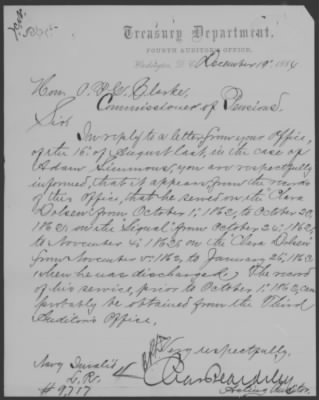 Treasury Department,
FOURTH AUDITOR'S OFFICE,
Washington, D. C. December 19", 1884
Hon. O. P. G. Clarke,
Commissioner of Pensions.
Sir:
In reply to a letter from your Office,
of the 16" of August last, in the case of
Adam Simmons, you are respectfully
informed, that it appears from the records
of this Office, that he served on the "Clara
Dolsen" from October 1", 1862, to October 20,
1862, on the "Signal" from October 24", 1862,
to November 4", 1862, on the "Clara Dolsen"
from November 5", 1862, to January 26", 1863
when he was discharged. The record
of his service, prior to October 1", 1862, can
probably be obtained from the Third
Auditor's Office.
Very respectfully,
Navy Invalid
Acting Auditor.
# 9717